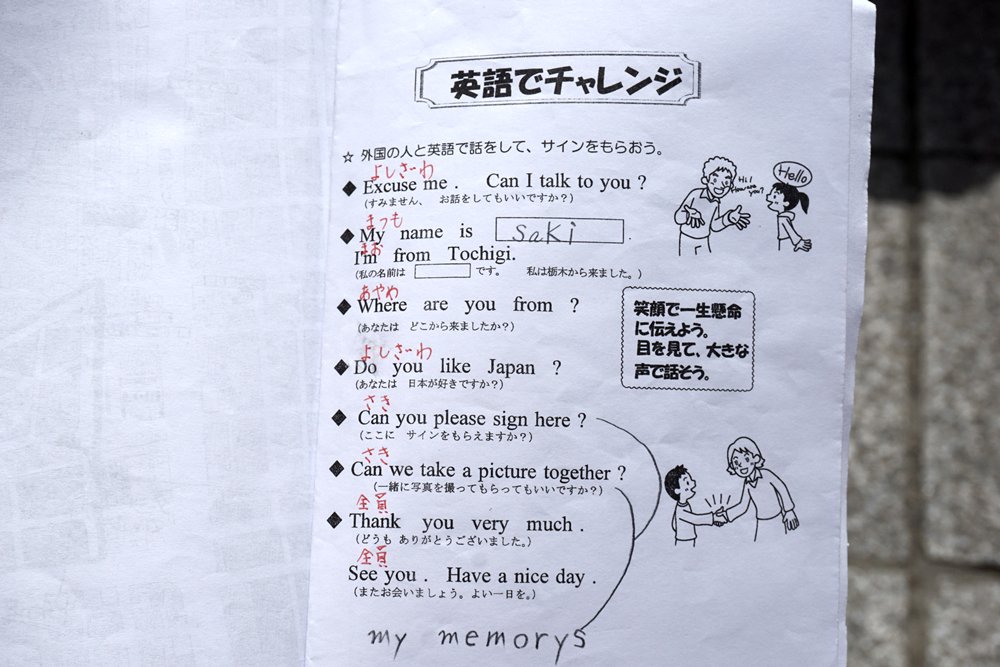 英語でチャレンジ
☆ 外国の人と英語で話をして、サインをもらおう。
よしざわ
◆ Excuse me . Can I talk to you ?
(すみません、 お話をしてもいいですか?)
Hi!
How are you?
Hello
まつも
◆ My name is saki .
まお
I'm from Tochigi.
(私の名前は です。 私は栃木から来ました。)
あやめ
◆ Where are you from ?
(あなたは どこから来ましたか?)
笑顔で一生懸命
に伝えよう。
目を見て、大きな
声で話そう。
よしざわ
◆ Do you like Japan ?
(あなたは 日本が好きですか?)
さき
◆ Can you please sign here ?
(ここに サインをもらえますか?)
さき
◆ Can we take a picture together ?
(一緒に写真を撮ってもらってもいいですか?)
全員
◆ Thank you very much .
(どうも ありがとうございました。)
全員
See you . Have a nice day .
(またお会いましょう。よい一日を。)
my memorys